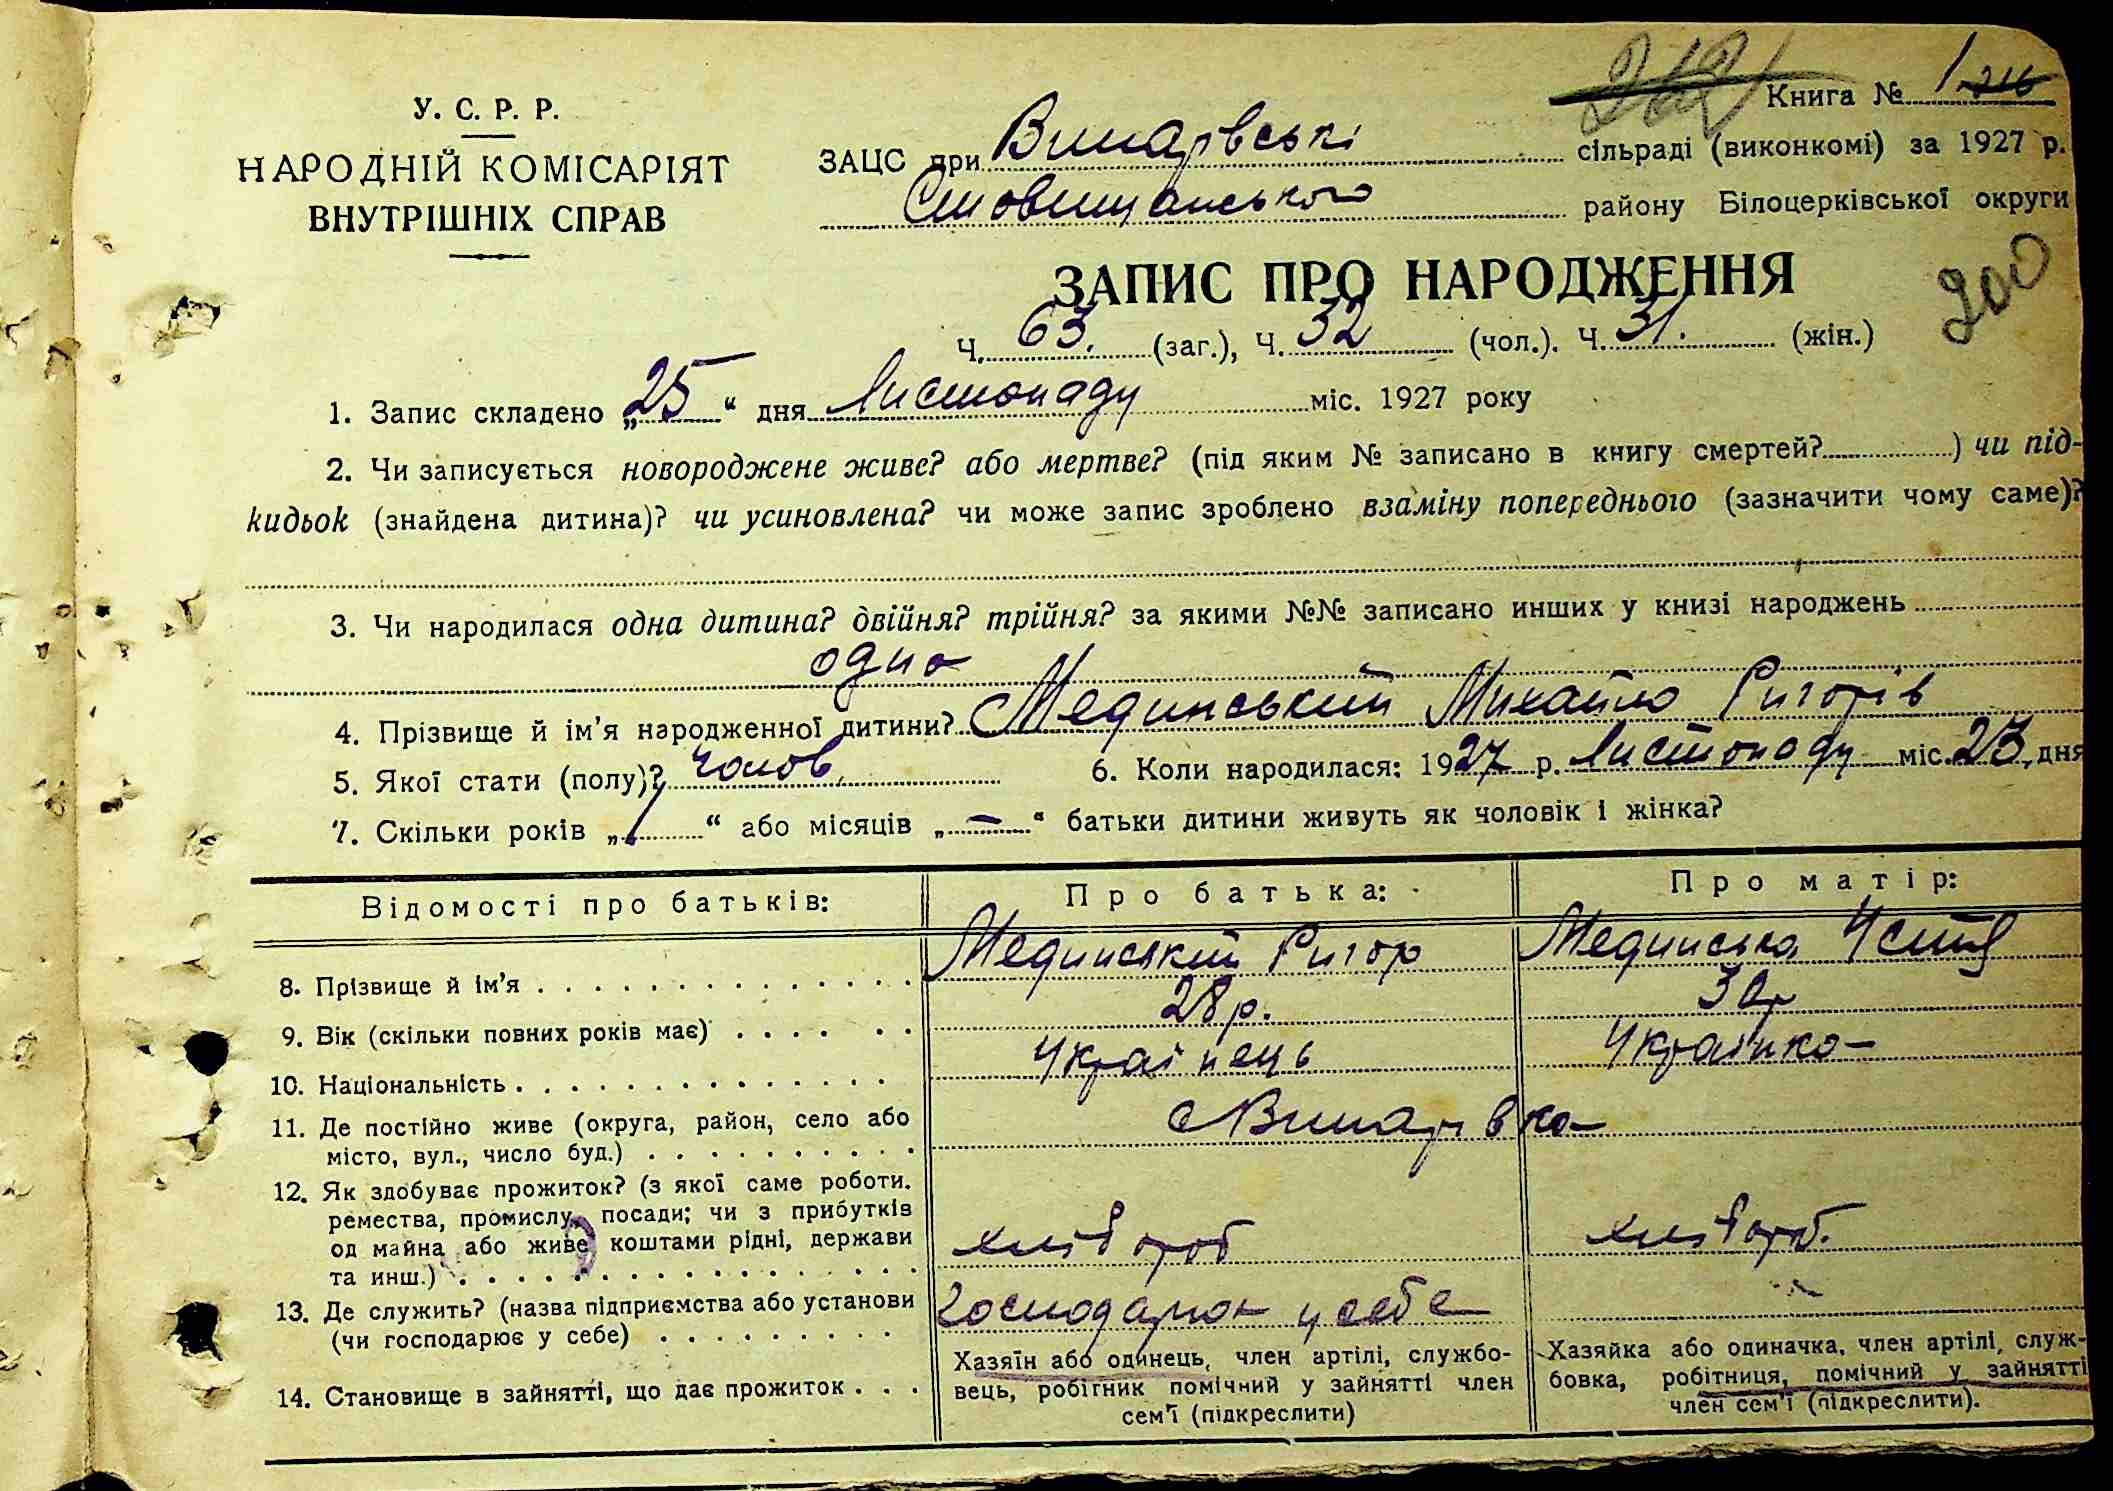 Книга № 1 216
У. С. Р. Р.
НАРОДНІЙ КОМІСАРІЯТ
ВНУТРІШНІХ СПРАВ
ЗАЦС при Винарівські сільраді (виконкомі) за 1927 р.
Ставищанського району Білоцерківської округи
200
ЗАПИС ПРО НАРОДЖЕННЯ
Ч. 63. (заг.), Ч. 32 (чол.). Ч. 31. (жін.)
1. Запис складено „25“ дня Листопаду міс. 1927 року
2. Чи записується новороджене живе? або мертве? (під яким № записано в книгу смертей?) чи під-
кидьок (знайдена дитина)? чи усиновлена? чи може запис зроблено взаміну попереднього (зазначити чому саме)?
3. Чи народилася одна дитина? двійня? трійня? за якими №№ записано инших у книзі народжень
одна
4. Прізвище й ім'я народженної дитини? Мединський Михайло Ригорів
5. Якої стати (полу)? чолов. 6. Коли народилася: 1927 р. Листопаду міс. 23, дня
7. Скільки років „1“ або місяців „—“ батьки дитини живуть як чоловік і жінка?
Відомості про батьків: Про батька: Про матір:
8. Прізвище й ім'я Мединський Ригор Мединська Устя
9. Вік (скільки повних років має) 28 р. 30 р
10. Національність Українець Українка
11. Де постійно живе (округа, район, село або
місто, вул., число буд.) с Винарівка
12. Як здобуває прожиток? (з якої саме роботи.
ремества, промислу, посади; чи з прибутків
од майна або живе коштами рідні, держави
та инш.) хлібороб хлібороб.
13. Де служить? (назва підприємства або установи
(чи господарює у себе) Господарює у себе
14. Становище в зайнятті, що дає прожиток
Хазяїн або одинець, член артілі, службо-
вець, робітник помічний у зайнятті член
сем'ї (підкреслити)
Хазяйка або одиначка, член артілі, служ-
бовка, робітниця, помічний у зайнятті
член сем'ї (підкреслити).